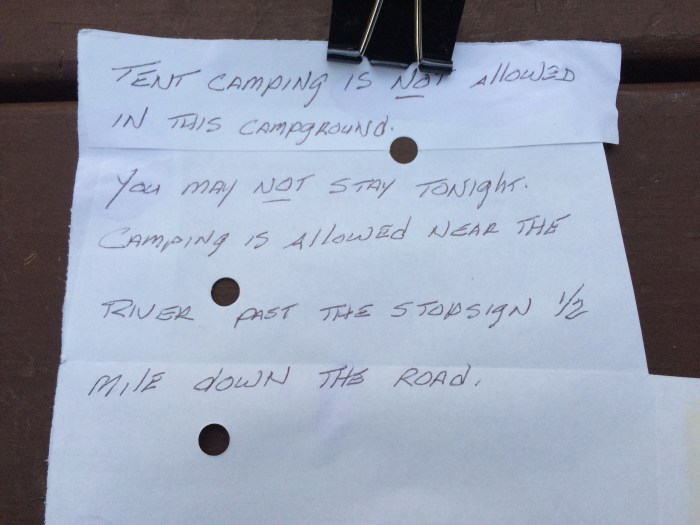 TENT CAMPING IS NOT AllOWED
IN THIS CAMPGROUND.
YOU MAY NOT STAY TONIGHT.
CAMPING IS AllOWEd NEAR THE
RIVER PAST THE STOPSIGN 1/2
MILE dOWN THE ROAd.